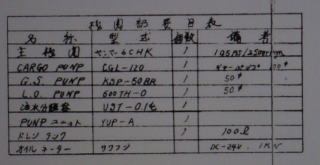 機関部要目表
名称 型式 台数 備考
主機関 ヤンマー6CHK 1 195PS/2500rpm
CARGO PUNP CGL-120 1
G.S PUNP KSP-50BR 1 50φ
L.O PUNP 600TH-O 1 50φ
油水分離器 UST-01型 1
PUNP ユニット YUP-A 1
ドレンタンク 100ℓ
オイルヒーター DC-24V 1KW